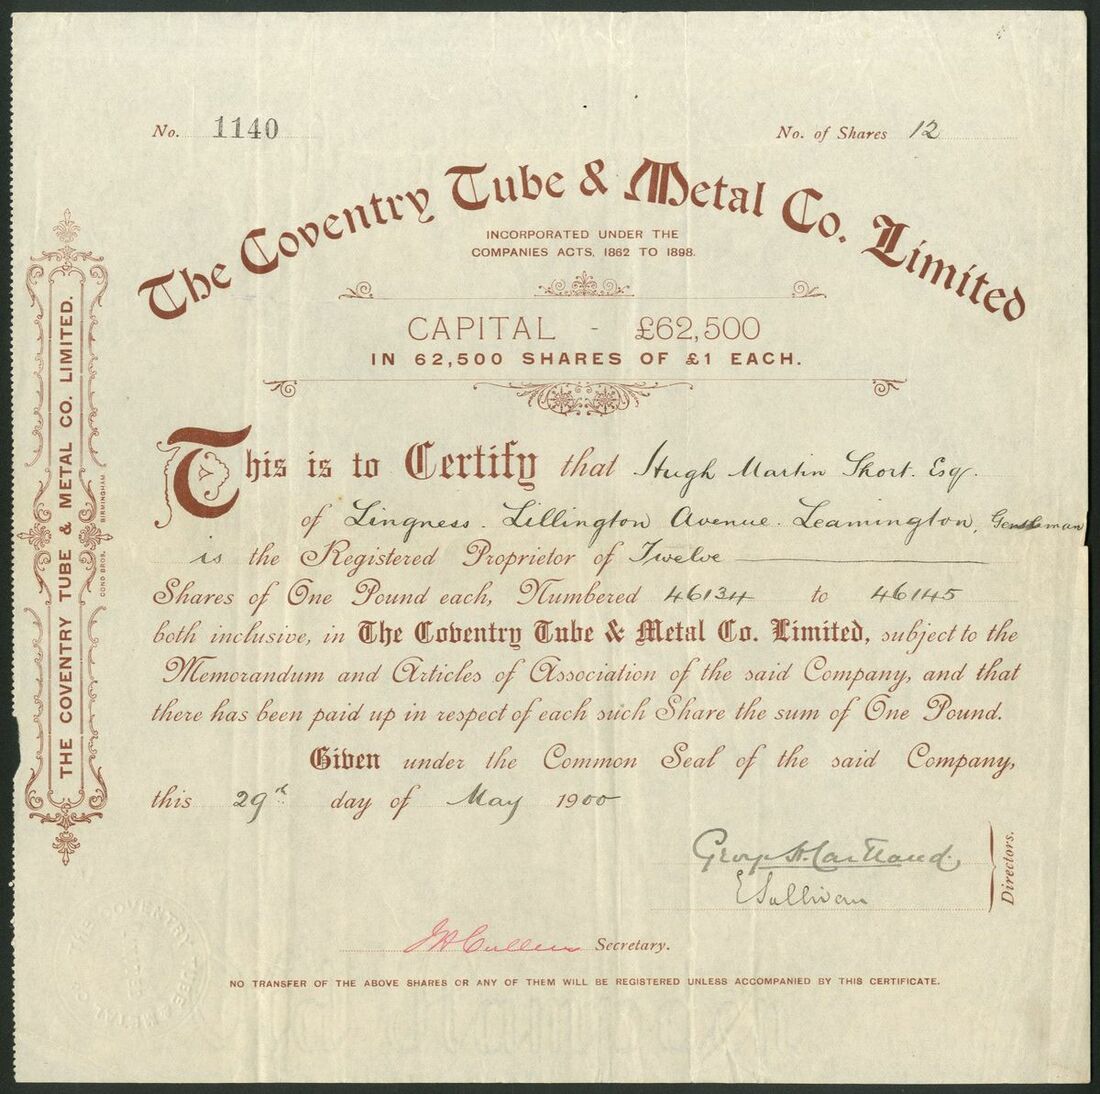 No. 1140
No. of Shares 12
The Coventry Tube & Metal Co. Limited
INCORPORATED UNDER THE
COMPANIES ACTS, 1862 TO 1898.
CAPITAL - £62,500
IN 62,500 SHARES OF £1 EACH.
This is to Certify that Hugh Martin Short. Esq.
of Lingness. Lillington Avenue. Leamington, Gentleman
is the Registered Proprietor of Twelve
Shares of One Pound each, Numbered 46134 to 46145
both inclusive, in The Coventry Tube & Metal Co. Limited, subject to the
Memorandum and Articles of Association of the said Company, and that
there has been paid up in respect of each such Share the sum of One Pound.
Given under the Common Seal of the said Company,
this 29th day of May 1900
George H. Cartland
E Sullivan
Directors.
J H Cullen Secretary.
NO TRANSFER OF THE ABOVE SHARES OR ANY OF THEM WILL BE REGISTERED UNLESS ACCOMPANIED BY THIS CERTIFICATE.
THE COVENTRY TUBE & METAL CO. LIMITED.
COND BROS. BIRMINGHAM
THE COVENTRY TUBE & METAL CO.
LIMITED